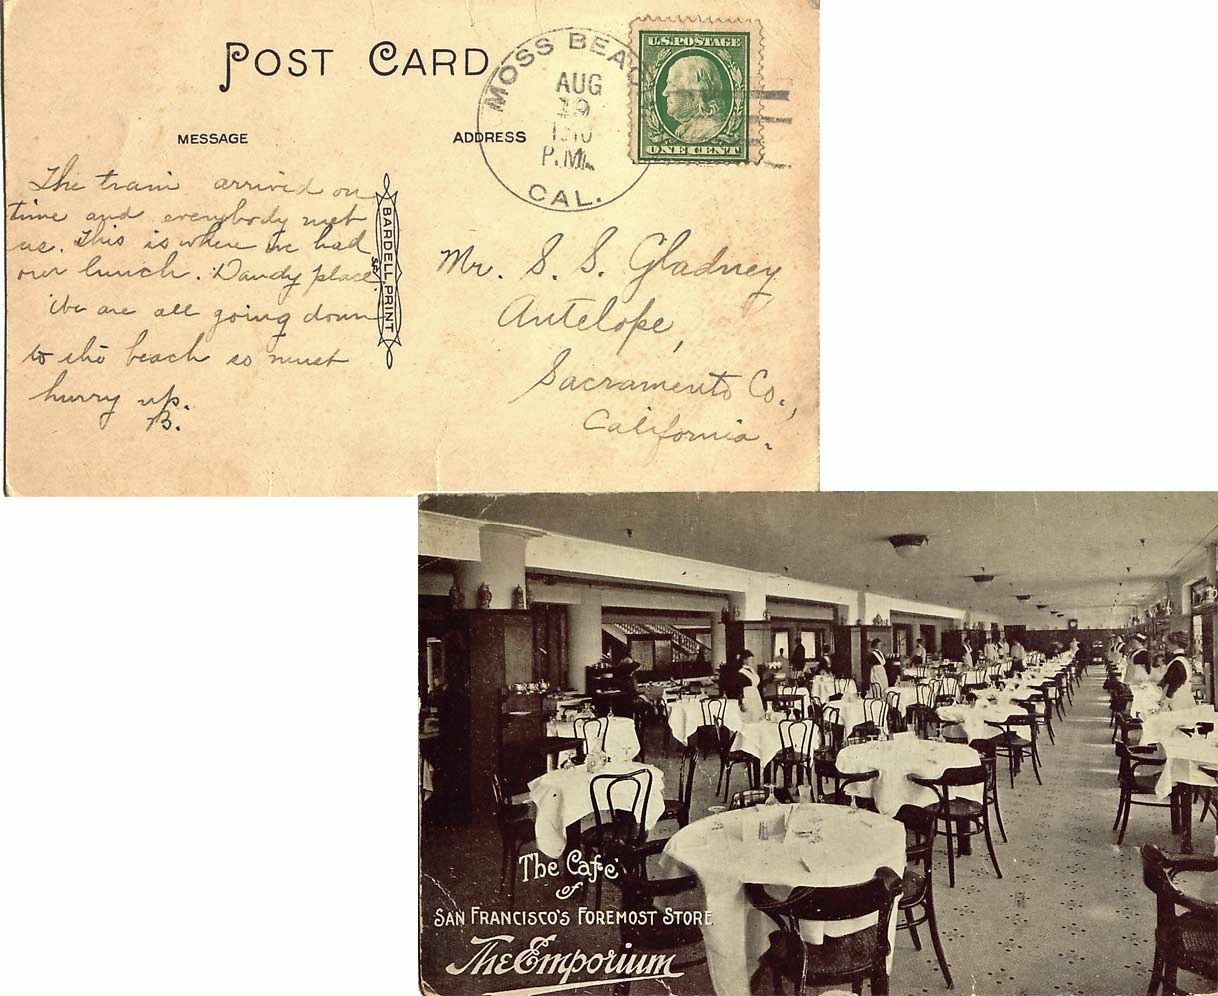 POST CARD
MOSS BEACH
AUG
19
1910
P.M.
CAL.
U.S. POSTAGE
ONE CENT
MESSAGE
ADDRESS
The train arrived on
time and everybody met
us. This is where we had
our lunch. Dandy place.
We are all going down
to the beach so must
hurry up.
B.
BARDELL PRINT
SF
Mr. S. S. Gladney
Antelope,
Sacramento Co.,
California.
The Café
of
SAN FRANCISCO'S FOREMOST STORE
The Emporium